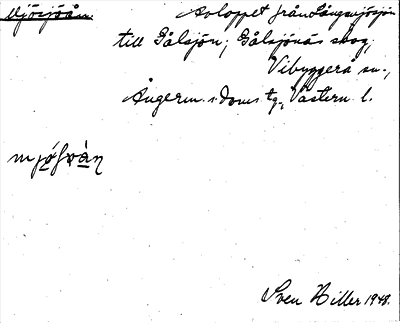 Mjösjöån. Avloppet från Långmjösjön
till Gålsjön; Gålsjönäs skog,
Vibyggerå sn.,
Ångerm. s. doms tg., Västern. l.
Sven Hiller 1948.